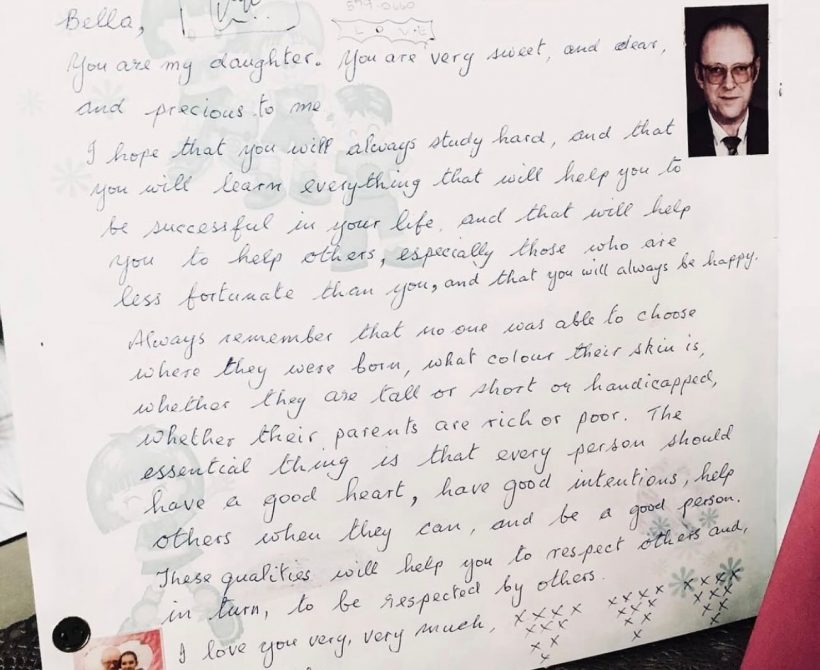 Bella,
L O V E
You are my daughter. You are very sweet, and dear,
and precious to me
I hope that you will always study hard, and that
you will learn everything that will help you to
be successful in your life, and that will help
you to help others, especially those who are
less fortunate than you, and that you will always be happy.
Always remember that no one was able to choose
where they were born, what colour their skin is,
whether they are tall or short or handicapped,
whether their parents are rich or poor. The
essential thing is that every person should
have a good heart, have good intentions, help
others when they can, and be a good person.
These qualities will help you to respect others and,
in turn, to be respected by others.
I love you very, very much,